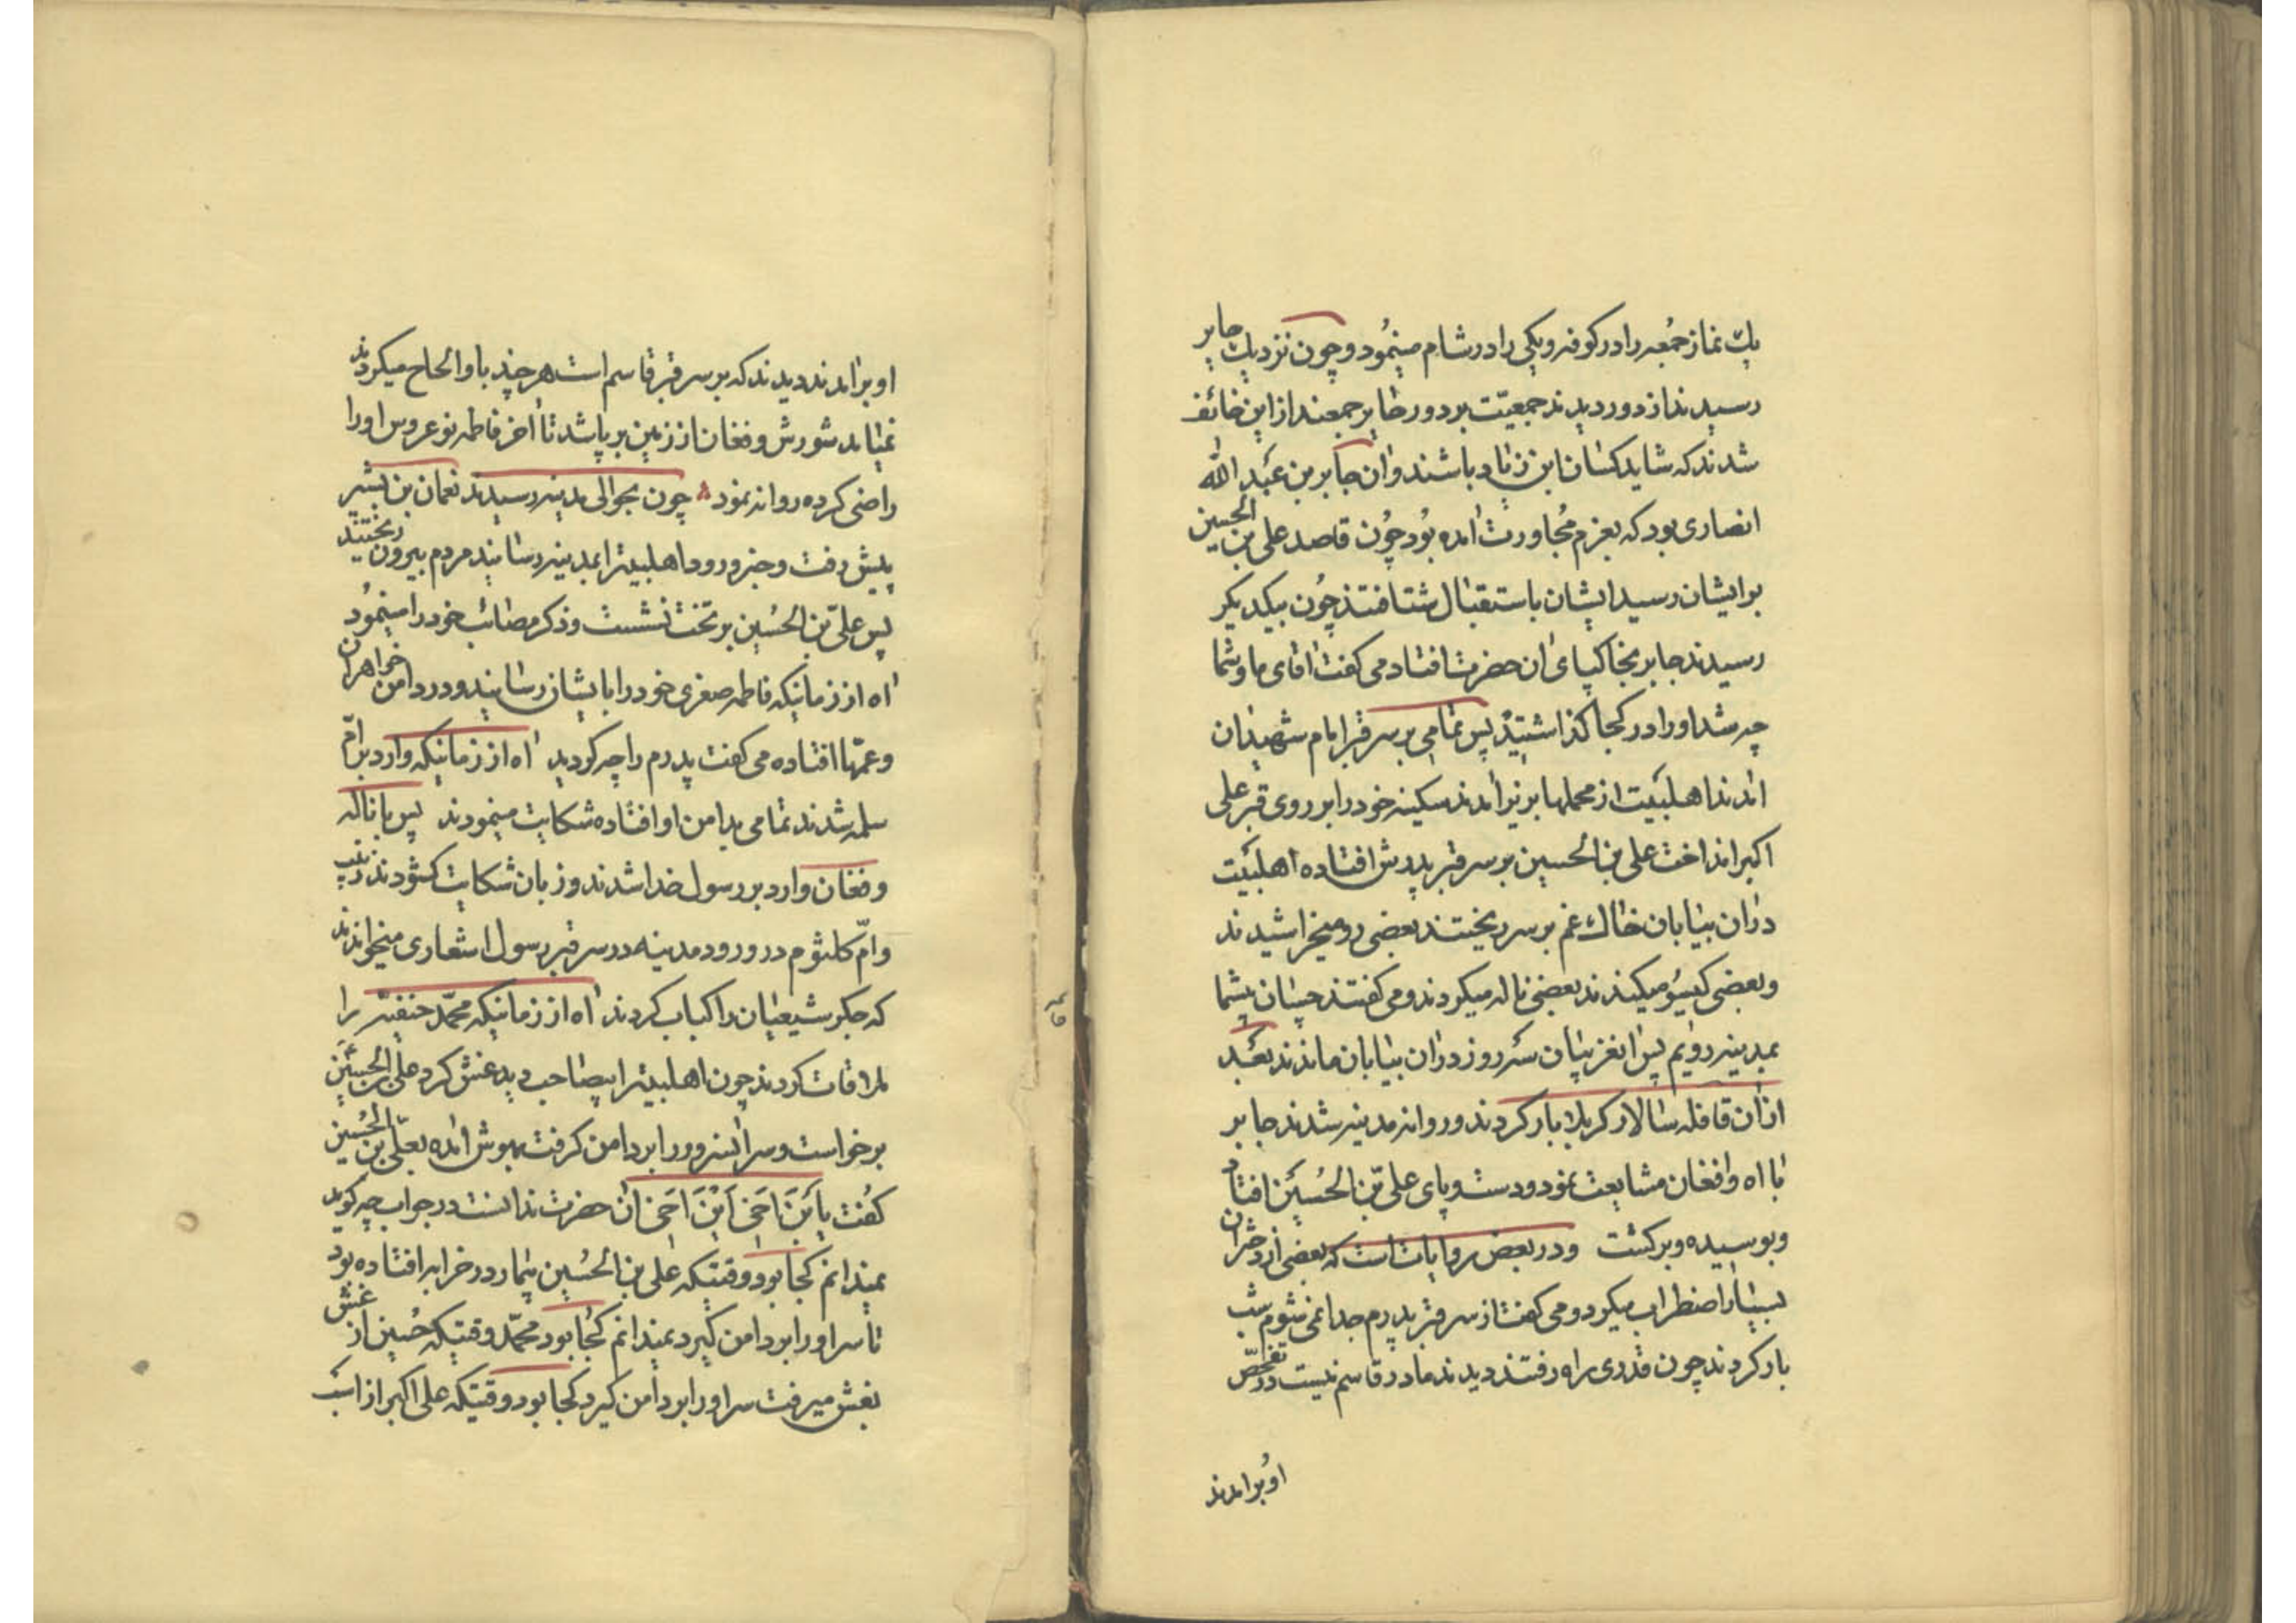 یك نماز جمعه را در کوفه و یکی را در شام مینمود و چون نزدیك جابر
رسیدند از دور دیدند جمعیّت بر دور حایر جمعند از این خائف
شدند که شاید کسان ابن زیاد باشند و ان جابر بن عبد الله
انصاری بود که بعزم مُجاورت امده بُود چُون قاصد علی بن الحسین
بر ایشان رسید ایشان باستقبال شتافتند چُون بیکدیکر
رسیدند جابر بخاکپای ان حضرت افتاد می کفت اقای ما و شما
چه شد او را در کجا کذاشتید پس تمامی بر سر قبر امام شهیدان
امدند اهلبیت از محملها بزیر امدند سکینه خود را بر روی قبر علی
اکبر انداخت علی بن الحسین بر سر قبر پدرش افتاده اهلبیت
در ان بیابان خاك غم بر سر ریختند بعضی رو میخراشیدند
و بعضی کیسُو میکندند بعضی ناله میکردند و می کفتند حسان بیشما
بمدینه رویم پس انغریبان سه روز در ان بیابان ماندند بعد
از ان قافله سالار کربلا بار کردند و روانه مدینه شدند جابر
با اه و افغان مشایعت نمود و دست و پای علیّ بن الحُسین افتاد
و بوسیده و برکشت و در بعض روایات است که بعضی از دختران
بسیار اضطراب میکرد و می کفت از سر قبر پدرم جدا نمی شوم شب
بار کردند چون قدری راه رفتند دیدند مادر قاسم نیست در تفحّص
او بر امدند
او بر امدند دیدند که بر سر قبر قاسم است هر چند باو الحاح میکردند
نمیامد شورش و فغان از زمین بر پا شد تا اخر فاطمه نو عروس او را
راضی کرده روانه نمود چون بحوالی مدینه رسیدند نعمان بن بشیر
پیش رفت و خبر ورود اهلبیت را بمدینه رسانید مردم بیرون ریختند
پس علیّ بن الحُسین بر تخت نشست و ذکر مصائب خود را مینمُود
اه از زمانیکه فاطمه صغری خود را بایشان رسانید و در دامن خواهران
و عمّها افتاده می کفت پدرم را چه کردید اه از زمانیکه وارد بر امّ
سلمه شدند تمامی بدامن او افتاده شکایت مینمودند پس با ناله
و فغان وارد بر رسول خدا شدند و زبان شکایت کشودند زینب
و امّ کلثوم در ورود مدینه در سر قبر رسول اشعاری میخواندند
که جکر شیعیان را کباب کردند اه از زمانیکه محمّد حنفیّه را
ملاقات کردند چون اهلبیت را بیصاحب دید غش کرد علی بن الحسین
برخواست و سر انسرور را بر دامن کرفت بهوش امده بعلّی بن الحُسین
کفت یابنَ اَخی اَینَ اَخی ان حضرت ندانست در جواب چه کوید
نمیدانم کجا بود وقتیکه علی بن الحُسین بیمار در خرابه افتاده بود
تا سر او را بر دامن کیرد نمیدانم کجا بود محمّد وقتیکه حُسین از غش
بغش میرفت سر او را بر دامن کیرد کجا بود وقتیکه علی اکبر از اسب